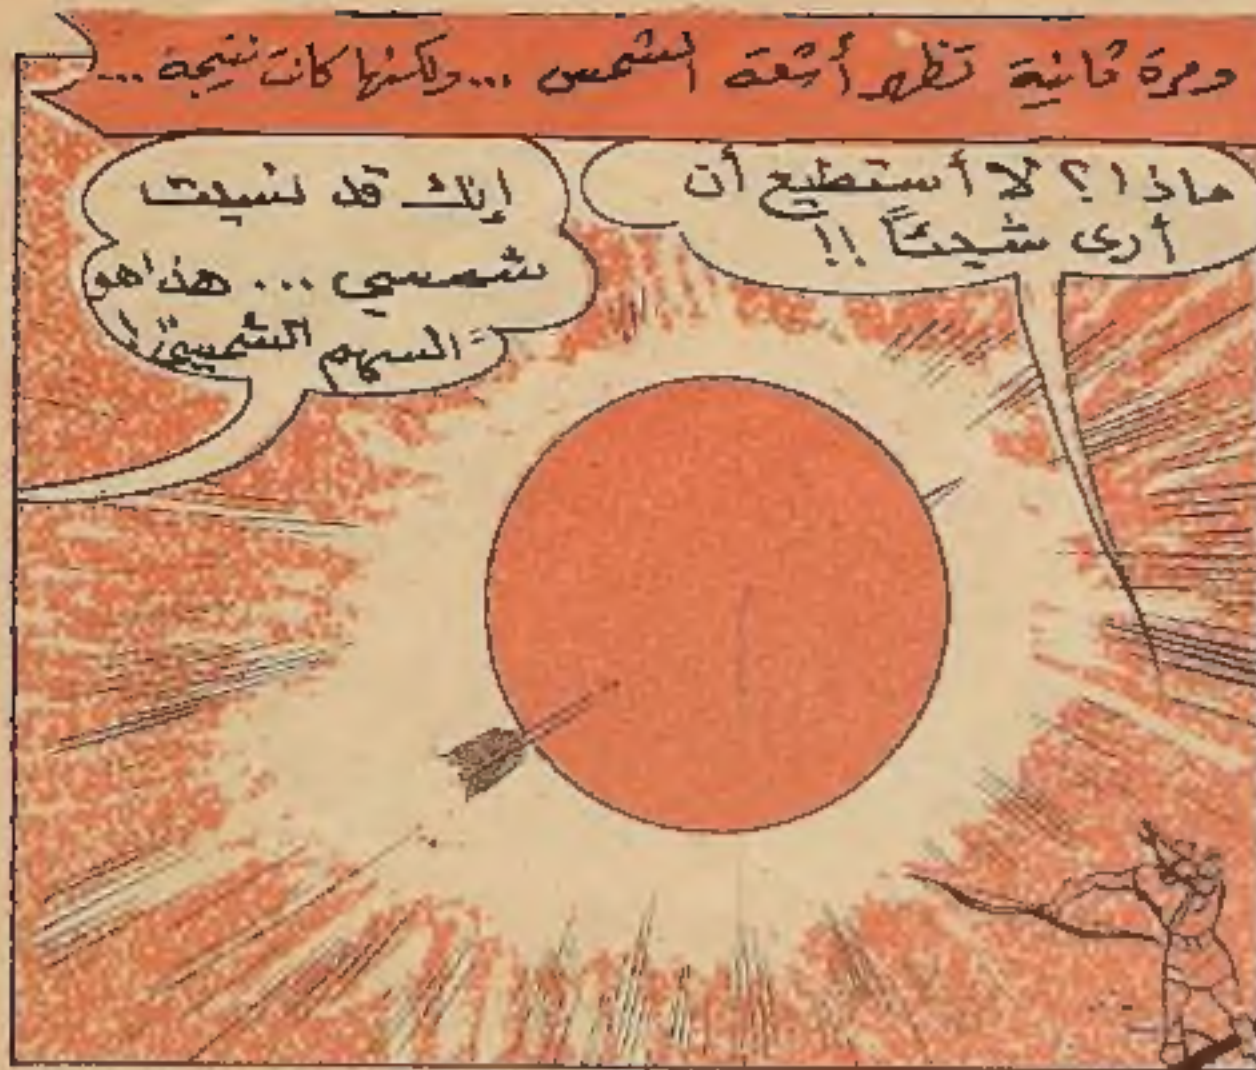 ومرة ثانية تظهر أشعة الشمس ... ولكنها كانت نتيجة ...
ماذا؟ لا أستطيع أن
أرى شيئاً !!
إنك قد نسيت
شمسي ... هذا هو
السهم الشمسي!